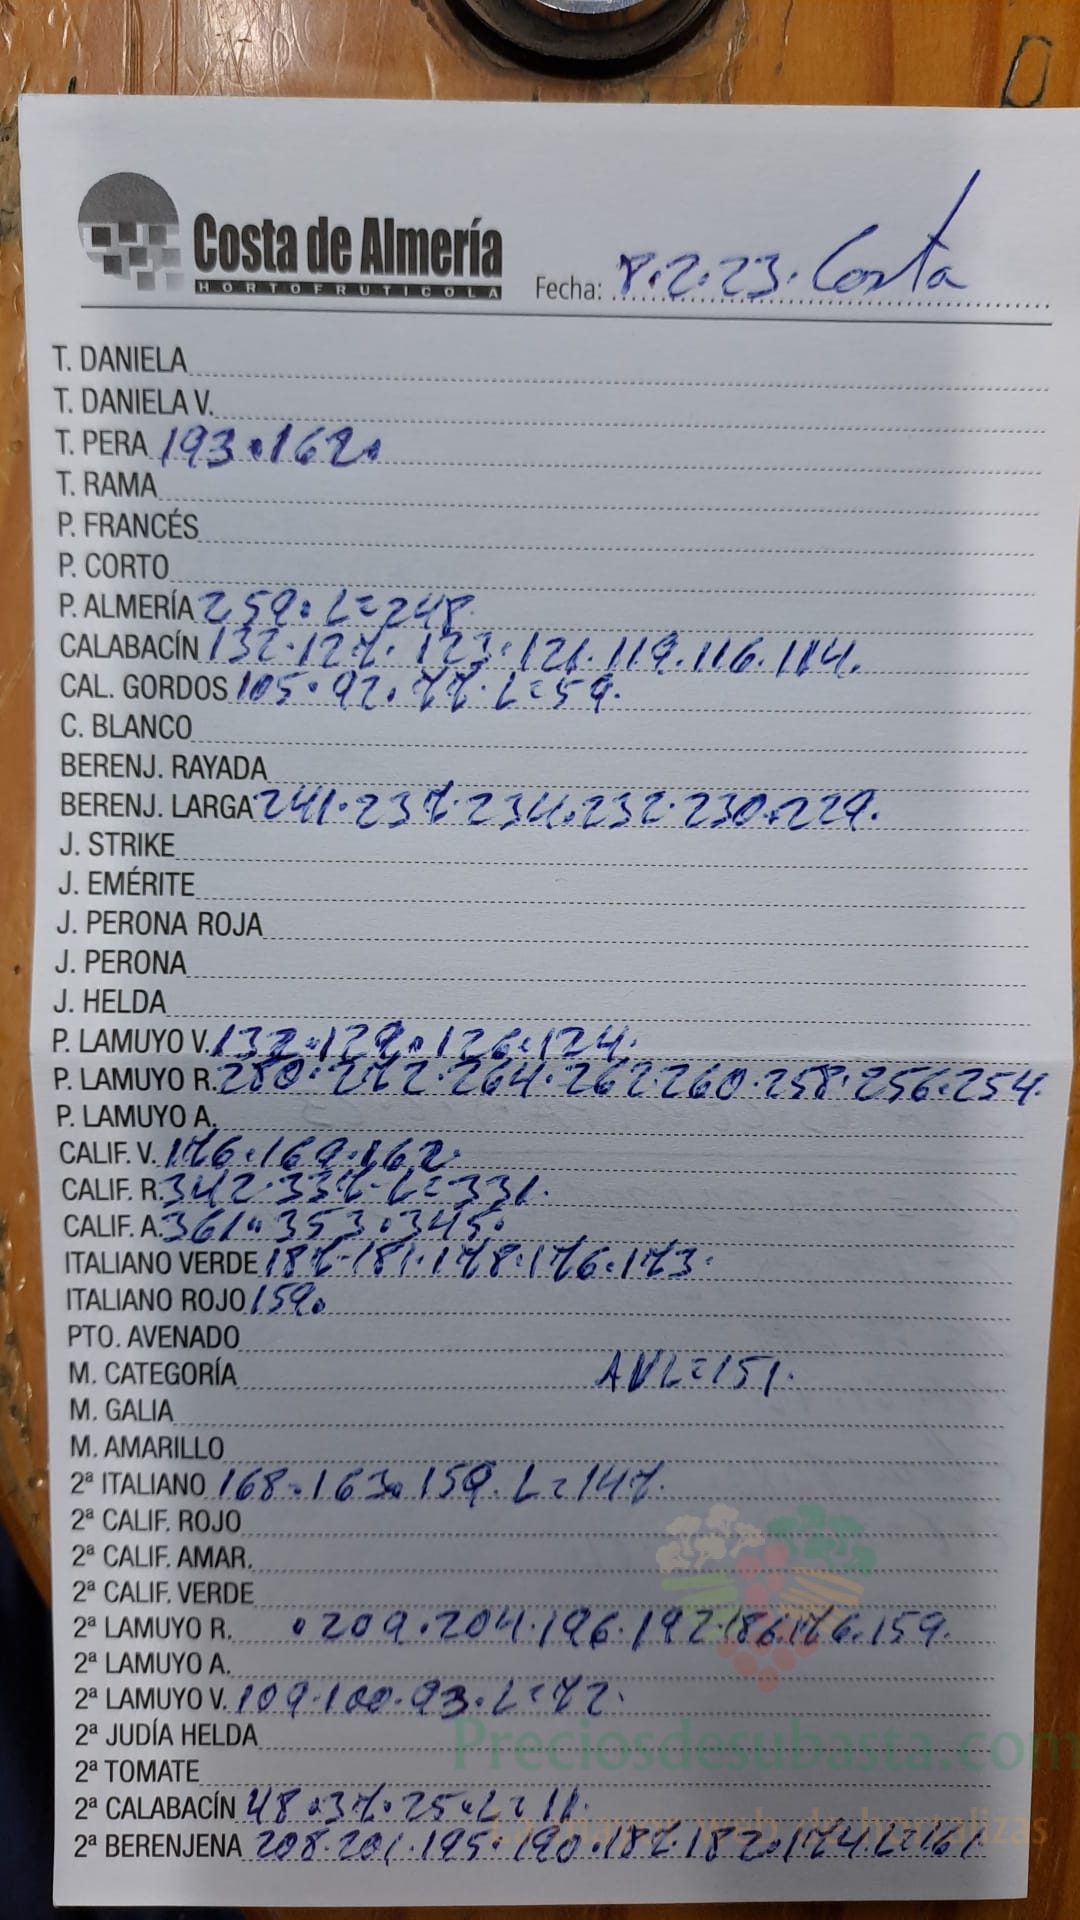 Costa de Almería
HORTOFRUTICOLA
Fecha: 8.2.23. Costa
T. DANIELA
T. DANIELA V.
T. PERA 193.162.
T. RAMA
P. FRANCÉS
P. CORTO
P. ALMERÍA 259. L=248
CALABACÍN 132.127. 123.121.119.116.114.
CAL. GORDOS 105.92.77.L=59.
C. BLANCO
BERENJ. RAYADA
BERENJ. LARGA 241.237.234.232.230.229.
J. STRIKE
J. EMÉRITE
J. PERONA ROJA
J. PERONA
J. HELDA
P. LAMUYO V. 132.129.126.124.
P. LAMUYO R. 280.272.264.262.260.258.256.254.
P. LAMUYO A.
CALIF. V. 176.169.162.
CALIF. R. 342.337.L=331.
CALIF. A. 361.353.345.
ITALIANO VERDE 187.181.178.176.173.
ITALIANO ROJO 159.
PTO. AVENADO
M. CATEGORÍA AVL=151.
M. GALIA
M. AMARILLO
2ª ITALIANO 168.163.159.L=147.
2ª CALIF. ROJO
2ª CALIF. AMAR.
2ª CALIF. VERDE
2ª LAMUYO R. .209.204.196.192.186.176.159.
2ª LAMUYO A.
2ª LAMUYO V. 109.100.93.L=72.
2ª JUDÍA HELDA
Preciosdesubasta.com
2ª TOMATE
2ª CALABACÍN 48.37.25.L=11.
La mayor web de hortalizas
2ª BERENJENA 208.201.195.190.187.182.174.L=161